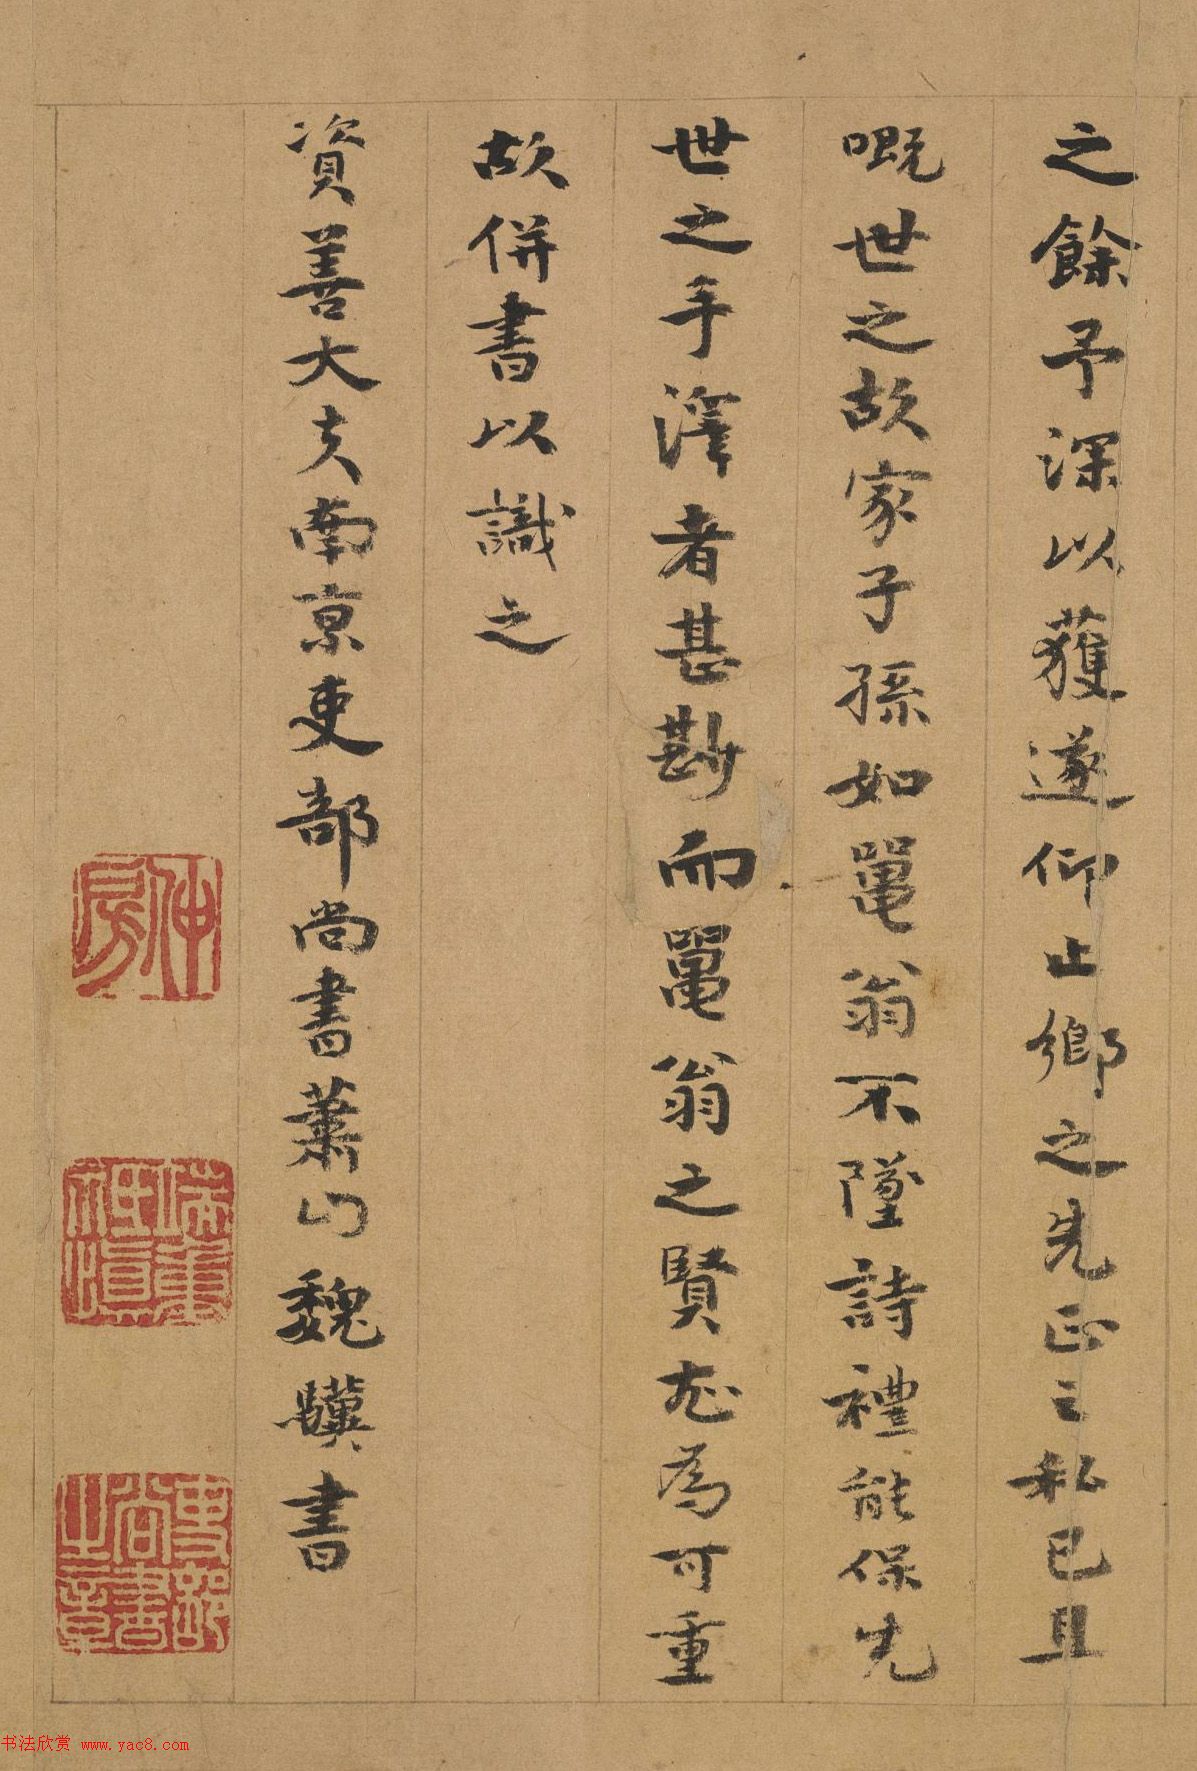 之餘予深以獲遂仰止鄉之先正之私已且
嘅世之故家子孫如鼂翁不墜詩禮能保先
世之手澤者甚尠而鼂翁之賢尤為可重
故併書以識之
資善大夫南京吏部尚書蕭山魏驥書
仲房
吏部尚書之章
书法欣赏 www.yac8.com